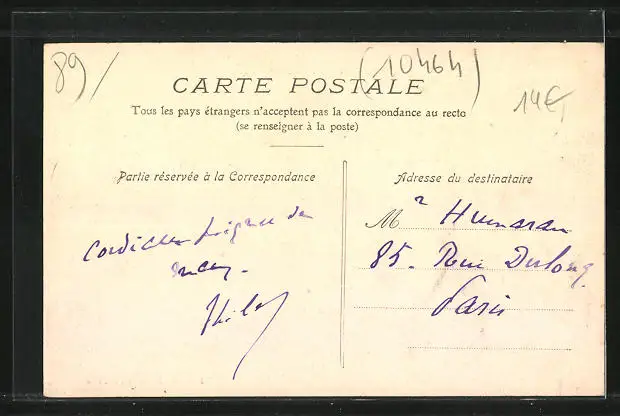 89/
(10464)
14€
CARTE POSTALE
Tous les pays étrangers n'acceptent pas la correspondance au recto
(se renseigner à la poste)
Partie réservée à la Correspondance
Adresse du destinataire
Cordiale poignée de
Mr
85. Rue Dulong.
Paris